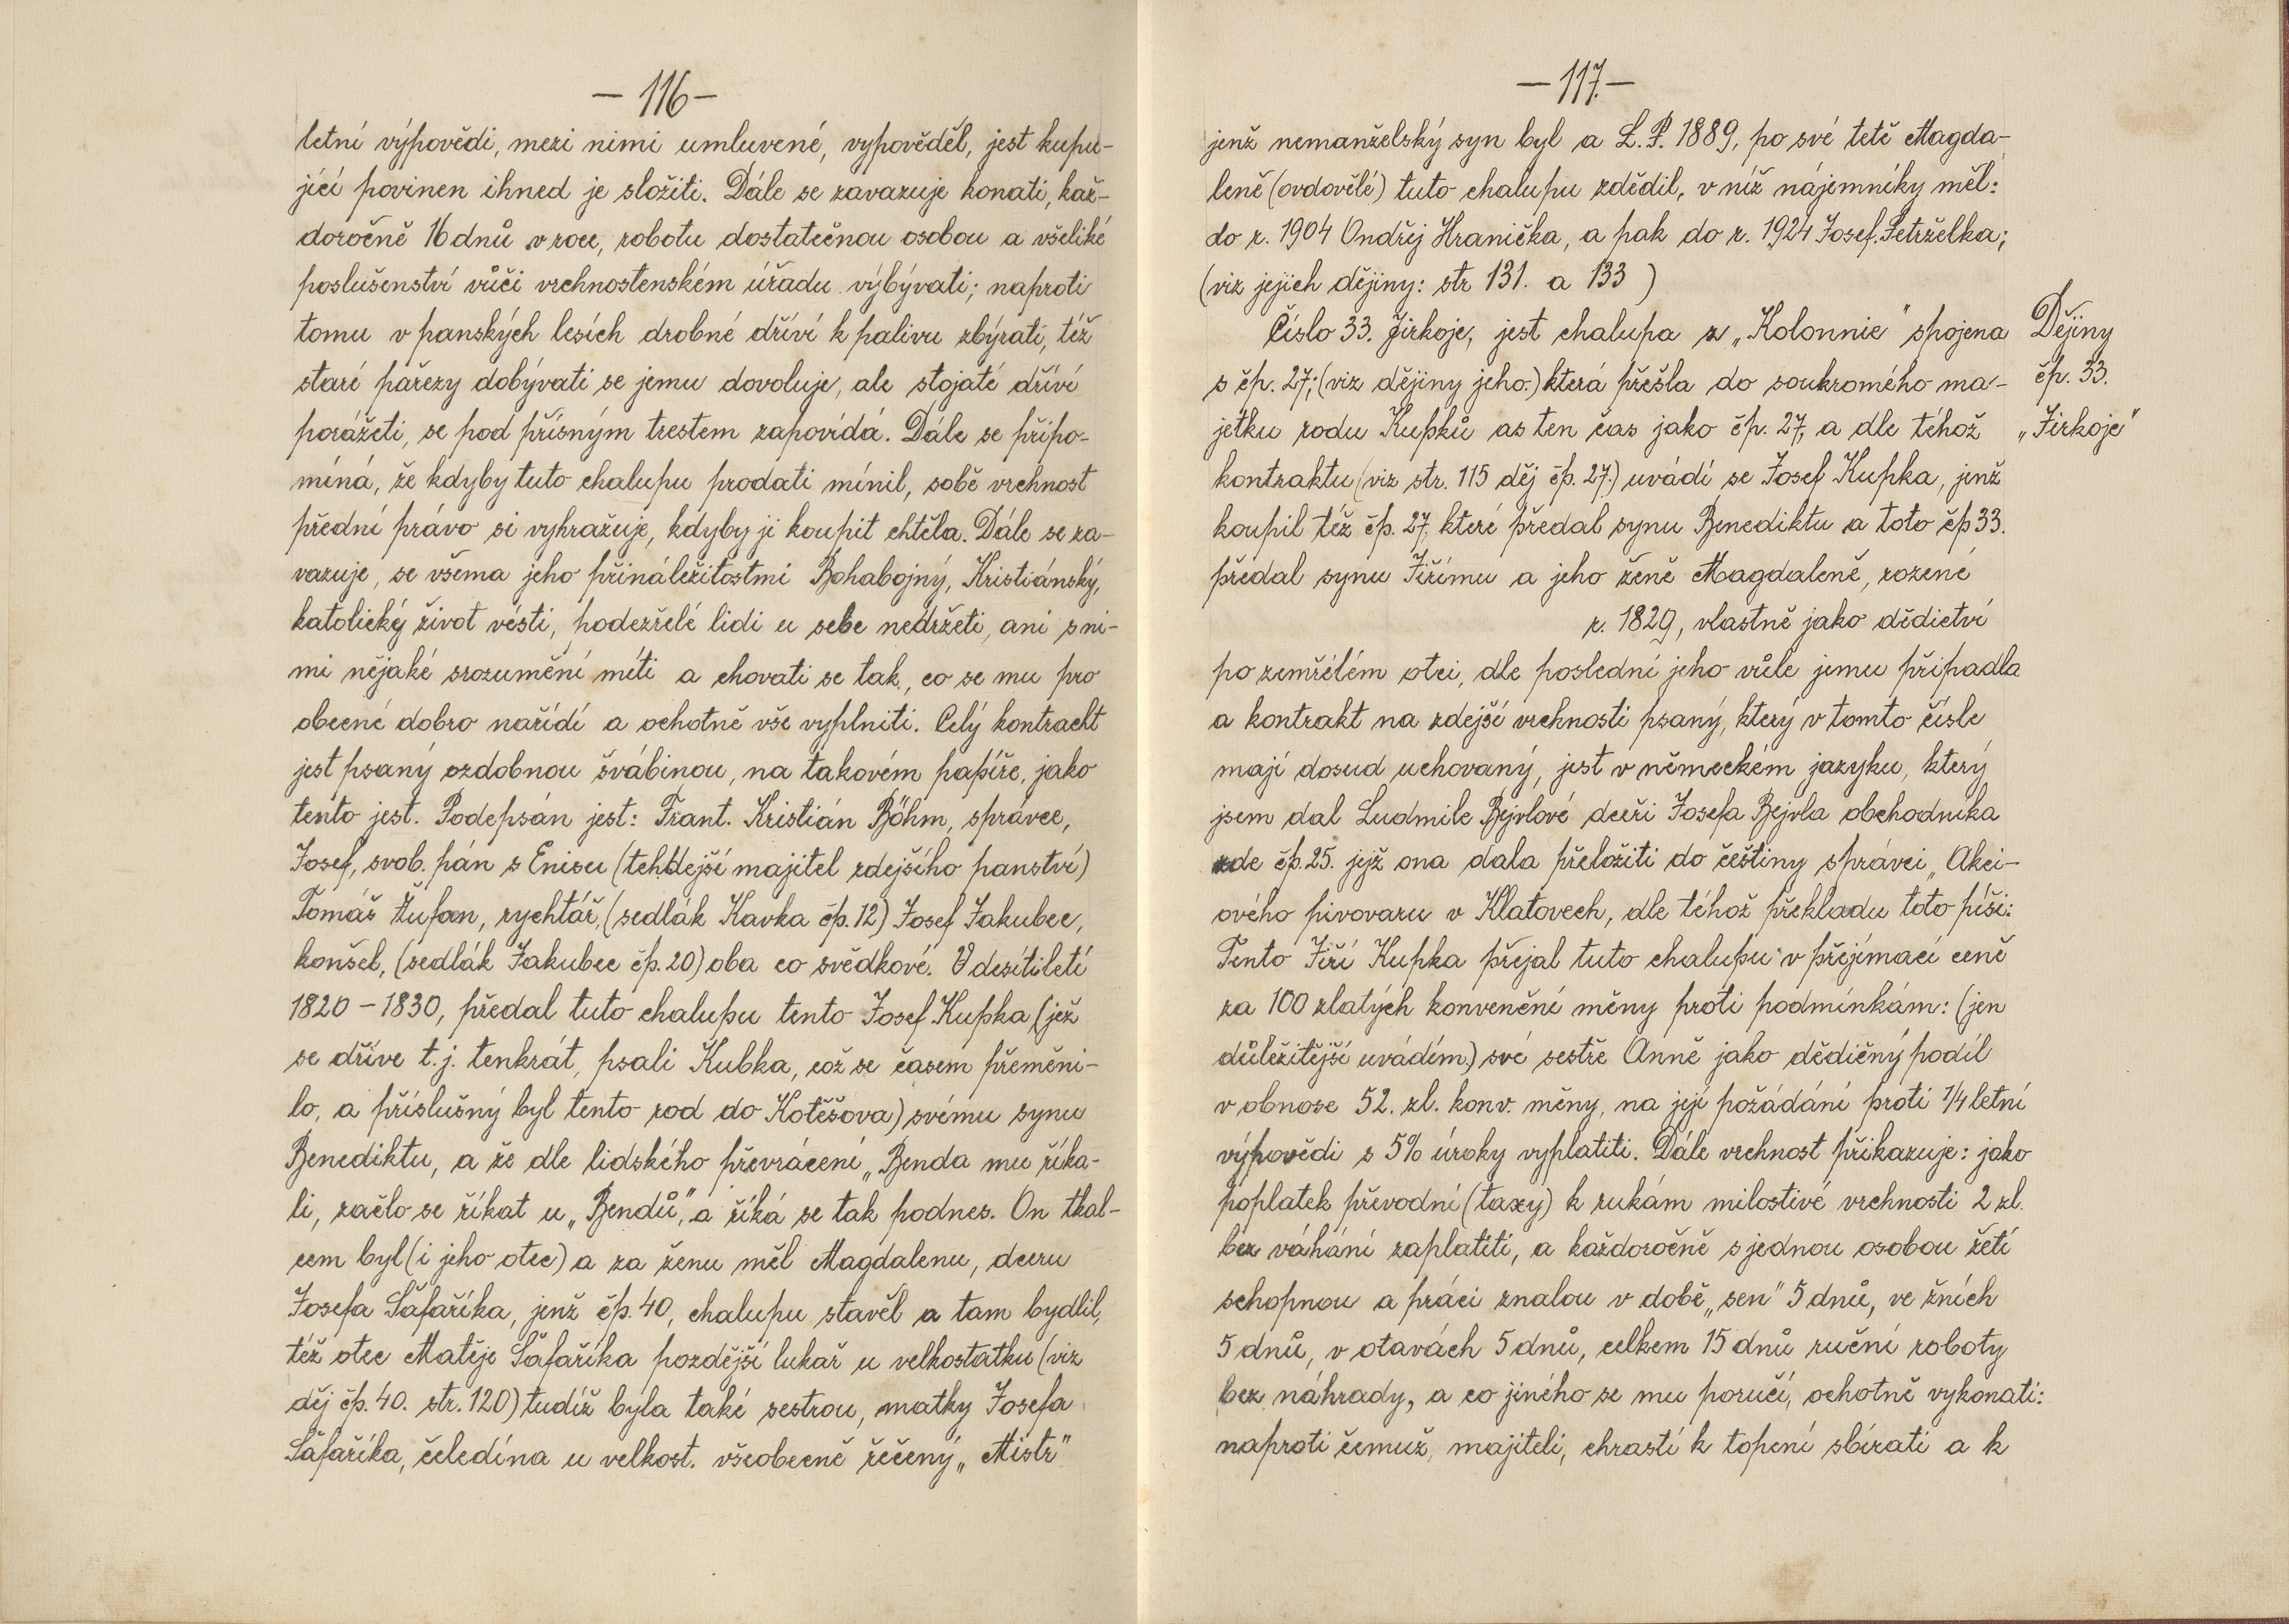 — 116 —
letní výpovědi, mezi nimi umluvené, vypověděl, jest kupu-
jící povinen ihned je složiti. Dále se zavazuje konati, kaž-
doročně 16 dnů v roce, robotu dostatečnou osobou a všeliké
poslušenství vůči vrchnostenském úřadu výbývati; naproti
tomu v panských lesích drobné dříví k palivu zbýrati, též
staré pařezy dobývati se jemu dovoluje, ale stojaté dříví
porážeti, se pod přísným trestem zapovídá. Dále se připo-
míná, že kdyby tuto chalupu prodati mínil, sobě vrchnost
přední právo si vyhražuje, kdyby ji koupit chtěla. Dále se za-
vazuje, se všema jeho přináležitostmi Bohabojný, Kristiánský,
katolický život vésti, podezřelé lidi u sebe nedržeti, ani s ni-
mi nějaké srozumění míti a chovati se tak, co se mu pro
obecné dobro nařídí a ochotně vše vyplniti. Celý kontracht
jest psaný ozdobnou švábinou, na takovém papíře, jako
tento jest. Podepsán jest: Frant. Kristián Böhm, správce,
Josef, svob. pán s Enisu (tehdejší majitel zdejšího panství)
Tomáš Žufan, rychtář, (sedlák Kavka čp. 12) Josef Jakubec,
konšel, (sedlák Jakubec čp. 20) oba co svědkové. V desítiletí
1820 – 1830, předal tuto chalupu tento Josef Kupka (jež
se dříve t. j. tenkrát, psali Kubka, což se časem přeměni-
lo, a příslušný byl tento rod do Kotěšova) svému synu
Benediktu, a že dle lidského převrácení „Benda mu říka-
li, začlo se říkat u „Bendů", a říká se tak podnes. On tkal-
cem byl (i jeho otec) a za ženu měl Magdalenu, dceru
Josefa Šafaříka, jenž čp. 40, chalupu stavěl a tam bydlil,
též otec Matěje Šafaříka pozdější lukař u velkostatku (viz
děj čp. 40. str. 120) tudíž byla také sestrou, matky Josefa
Šafaříka, čeledína u velkost. všeobecně řečený „Mistr"
— 117. —
jenž nemanželský syn byl a L. P. 1889, po své tetě Magda-
leně (ovdovělé) tuto chalupu zdědil, v níž nájemníky měl:
do r. 1904 Ondřej Hranička, a pak do r. 1924 Josef Petrželka;
(viz jejich dějiny: str 131. a 133 )
Číslo 33. Jirkoje, jest chalupa z „Kolonnie" spojena
s čp. 27; (viz dějiny jeho.) která přešla do soukromého ma-
jetku rodu Kupků as ten čas jako čp. 27, a dle téhož
kontraktu (viz str. 115 děj čp. 27.) uvádí se Josef Kupka, jenž
koupil též čp. 27, které předal synu Benediktu a toto čp 33.
předal synu Jiřímu a jeho ženě Magdaleně, rozené
r. 1829, vlastně jako dědictví
po zemřelém otci, dle poslední jeho vůle jemu připadla
a kontrakt na zdejší vrchnosti psaný, který v tomto čísle
mají dosud uchovaný, jest v německém jazyku, který
jsem dal Ludmile Bejvlové dceři Josefa Bejvla obchodníka
zde čp. 25. jejž ona dala přeložiti do češtiny správci „Akci-
ového pivovaru v Klatovech, dle téhož překladu toto píši:
Tento Jiří Kupka přejal tuto chalupu v přejímací ceně
za 100 zlatých konvenční měny proti podmínkám: (jen
důležitější uvádím.) své sestře Anně jako dědičný podíl
v obnose 52. zl. konv. měny, na její požádání proti 1/4 letní
výpovědi s 5% úroky vyplatiti. Dále vrchnost přikazuje: jako
poplatek převodní (taxy) k rukám milostivé vrchnosti 2 zl.
bez váhání zaplatiti, a každoročně s jednou osobou žetí
schopnou a práci znalou v době „sen" 5 dnů, ve žních
5 dnů, v otavách 5 dnů, celkem 15 dnů ruční roboty
bez náhrady, a co jiného se mu poručí, ochotně vykonati:
naproti čemuž, majiteli, chrastí k topení sbírati a k
Dějiny
čp. 33.
„Jirkoje"